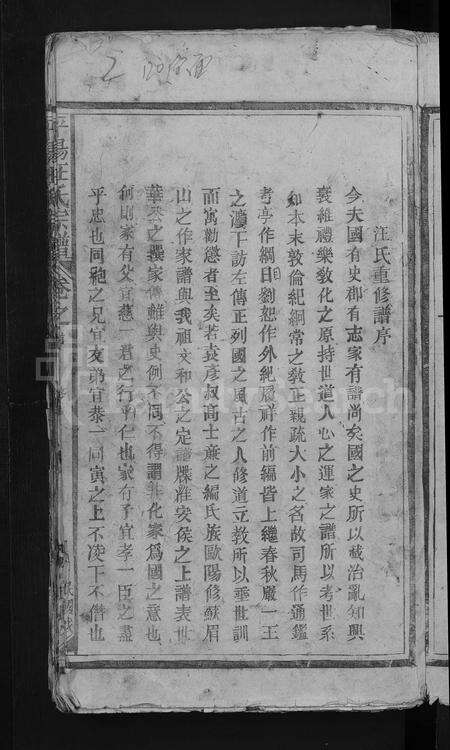 汪氏重修譜序
今夫國有史郡有志家有譜尚矣國之史所以載治亂知興
衰維禮樂敎化之原持世道人心之運家之譜所以考世系
知本末敦倫紀綱常之敎正親疏大小之名故司馬作通鑑
考亭作綱目劉恕作外紀履祥作前編皆上繼春秋嚴一王
之濅下訪左傳正列國之風古之人修道立敎所以垂世訓
而寓勸懲者至矣若袁彥叔高士廉之編氏族歐陽修蘇眉
山之作家譜與我祖文和公之定譜牒淮安侯之上譜表世
華公之撰家傳雖與史例不同不得謂非化家爲國之意也
何則家有父宜慈一君之行乎仁也家有子宜孝一臣之盡
乎忠也同胞之兄宜友弟宜恭一同寅之上不凌下不僭也
平陽汪氏宗譜
卷之